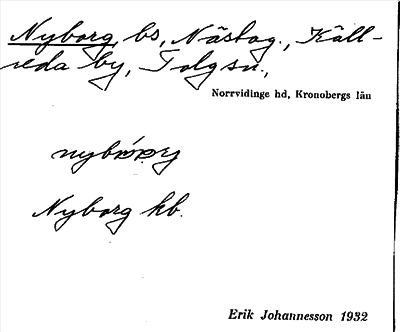 Nyborg, bs, Nästog., Käll-
reda by, Tolg sn.,
Norrvidinge hd, Kronobergs län
Nyborg kb.
Erik Johannesson 1932